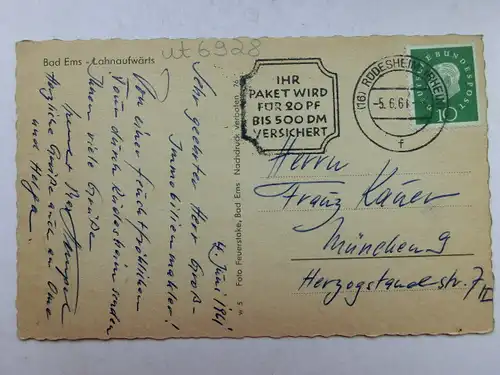 Bad Ems - Lahnaufwärts
ut 6928
4. Juni 1961
Sehr geehrter Herr Groß-
Immobilienmakler!
Von einer feucht-fröhlichen
Tour durch Rüdesheim senden
Ihnen viele Grüße
Herzliche Grüße auch an Oma
und
w 5 Foto Feuerstake, Bad Ems Nachdruck verboten
IHR
PAKET WIRD
FÜR 20 PF
BIS 500 DM
VERSICHERT
(16) RÜDESHEIM (RHEIN)
-5.6.61
f
DEUTSCHE BUNDESPOST
10
Herrn
Franz Kauer
München 9
Herzogstandstr. 7